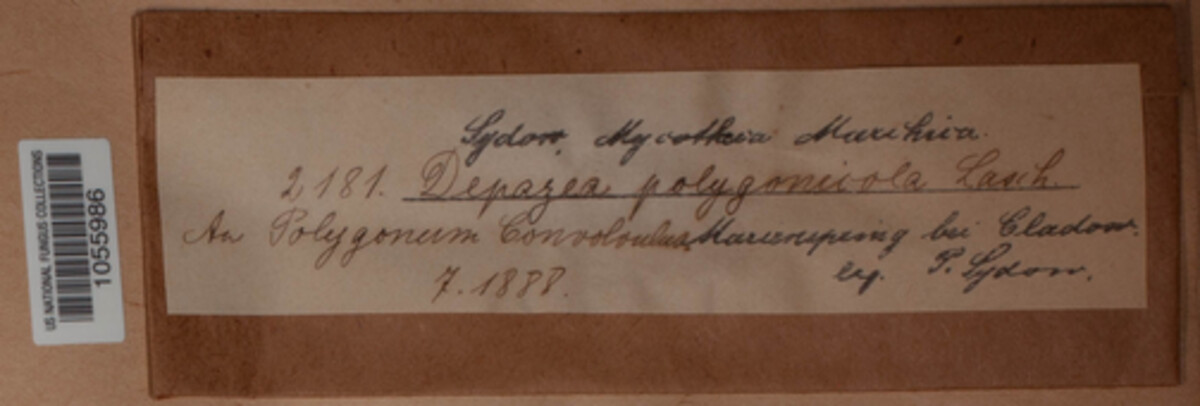 Sydow, Mycotheca Marchica.
2181. Depazea polygonicola Lasch.
An Polygonum Convolvulus bei Cladow.
7.1888. leg. P. Sydow.
US NATIONAL FUNGUS COLLECTIONS
1055986